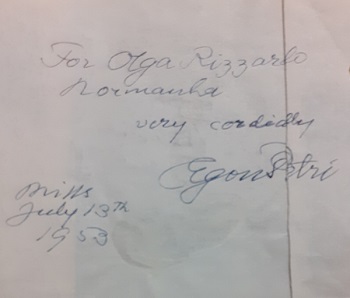 For Olga Rizzarlo
Normanha
very cordially
Egon Petri
Mills
July 13th
1953